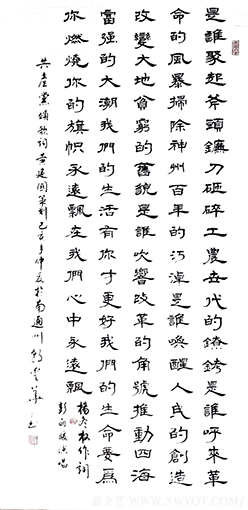 是誰聚起斧頭鐮刀砸碎工農世代的鐐銬是誰呼來革
命的風暴掃除神州百年的污淖是誰喚醒人民的創造
改變大地貧窮的舊貌是誰吹響改革的角號推動四海
富强的大潮我們的生活有你才更好我們的生命要爲
你燃燒你的旗幟永遠飄在我們心中永遠飄
共產黨頌歌詞黃建國策劃己丑年仲夏於南通川
楊冬枚作詞
彭丽媛演唱
WWW.XWYQT.COM